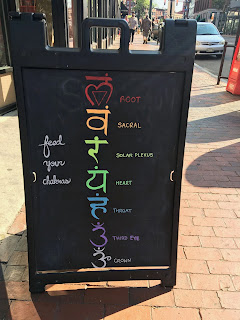 feed
your
chakras
ROOT
वं SACRAL
रं SOLAR PLEXUS
यं HEART
THROAT
ॐ THIRD EYE
ॐ CROWN